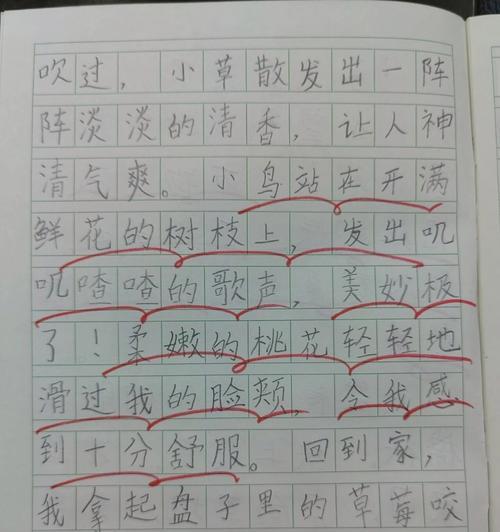 吹过，小草散发出一阵
阵淡淡的清香，让人神
清气爽。小鸟站在开满
鲜花的树枝上，发出叽
叽喳喳的歌声，美妙极
了！柔嫩的桃花轻轻地
滑过我的脸颊，令我感
到十分舒服。回到家，
我拿起盘子里的草莓咬